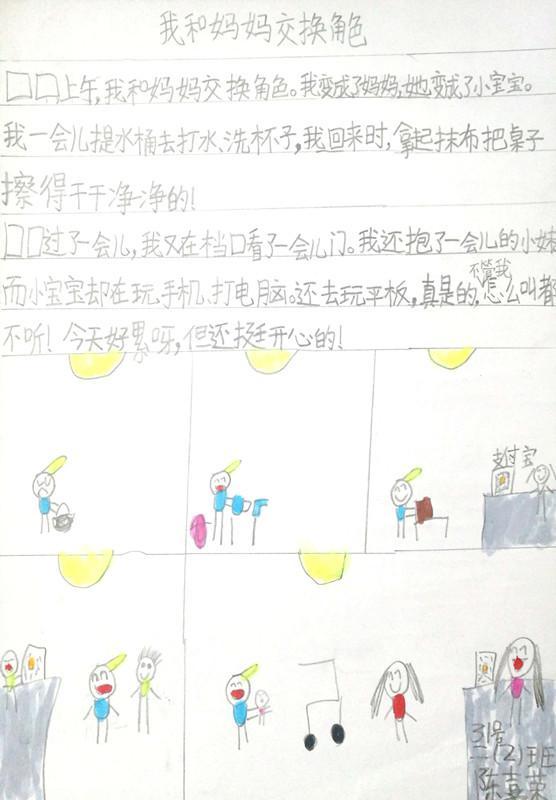 我和妈妈交换角色
□□上午,我和妈妈交换角色。我变成了妈妈,她变成了小宝宝。
我一会儿提水桶去打水、洗杯子,我回来时,拿起抹布把桌子
擦得干干净净的!
□□过了一会儿,我又在档口看了一会儿门。我还抱了一会儿的小妹
而小宝宝却在玩手机、打电脑。还去玩平板,真是的,不管我怎么叫都
不听!今天好累呀,但还挺开心的!
支付宝
31号
二(2)班
陈嘉荣